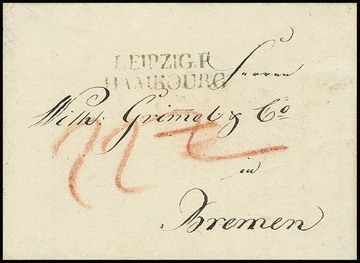 LEIPZIG.R.
HAMBOURG
Herren
Wilh: Grimol & Co
in
Bremen